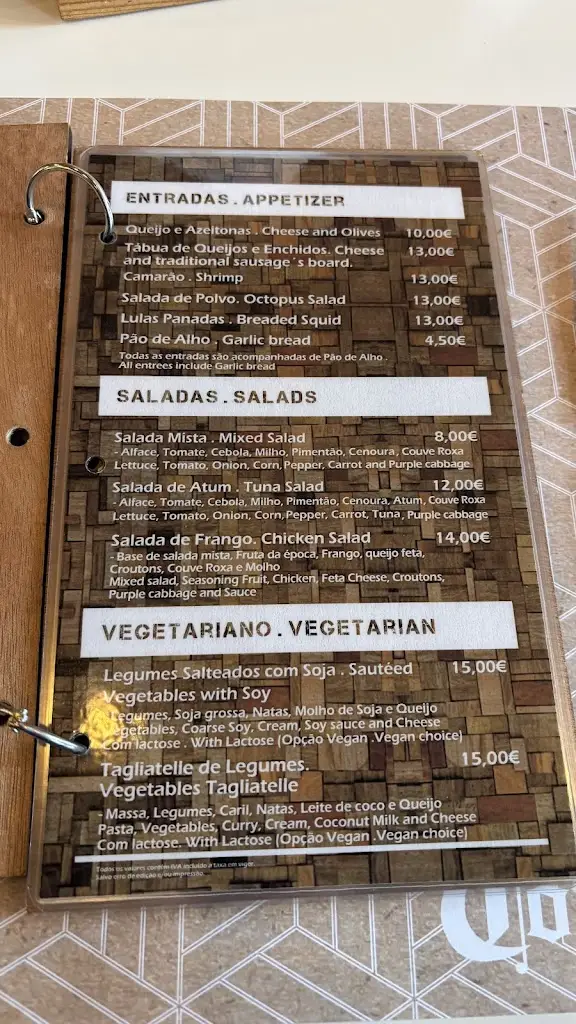 ENTRADAS . APPETIZER
Queijo e Azeitonas . Cheese and Olives 10,00€
Tábua de Queijos e Enchidos. Cheese 13,00€
and traditional sausage´s board.
Camarão . Shrimp 13,00€
Salada de Polvo. Octopus Salad 13,00€
Lulas Panadas . Breaded Squid 13,00€
Pão de Alho . Garlic bread 4,50€
Todas as entradas são acompanhadas de Pão de Alho .
All entrees include Garlic bread
SALADAS . SALADS
Salada Mista . Mixed Salad 8,00€
- Alface, Tomate, Cebola, Milho, Pimentão, Cenoura, Couve Roxa
Lettuce, Tomato, Onion, Corn, Pepper, Carrot and Purple cabbage
Salada de Atum . Tuna Salad 12,00€
- Alface, Tomate, Cebola, Milho, Pimentão, Cenoura, Atum, Couve Roxa
Lettuce, Tomato, Onion, Corn, Pepper, Carrot, Tuna, Purple cabbage
Salada de Frango. Chicken Salad 14,00€
- Base de salada mista, Fruta da época, Frango, queijo feta,
Croutons, Couve Roxa e Molho
Mixed salad, Seasoning Fruit, Chicken, Feta Cheese, Croutons,
Purple cabbage and Sauce
VEGETARIANO . VEGETARIAN
Legumes Salteados com Soja . Sautéed 15,00€
Vegetables with Soy
Legumes, Soja grossa, Natas, Molho de Soja e Queijo
Vegetables, Coarse Soy, Cream, Soy sauce and Cheese
Com lactose . With Lactose (Opção Vegan .Vegan choice)
Tagliatelle de Legumes. 15,00€
Vegetables Tagliatelle
- Massa, Legumes, Caril, Natas, Leite de coco e Queijo
Pasta, Vegetables, Curry, Cream, Coconut Milk and Cheese
Com lactose. With Lactose (Opção Vegan .Vegan choice)
Todos os valores contêm IVA incluído à taxa em vigor.
Salvo erro de edição e/ou impressão.